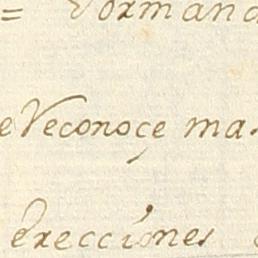 = Vormand
e Veconoçe ma
Erecciones